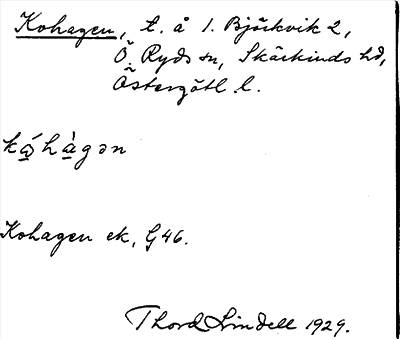 Kohagen, t. å 1. Björkvik 2,
Ö. Ryds sn, Skärkinds hd,
Östergötl. l.
kǫ́hàgən
Kohagen ek, G46.
Thord Lindell 1929.